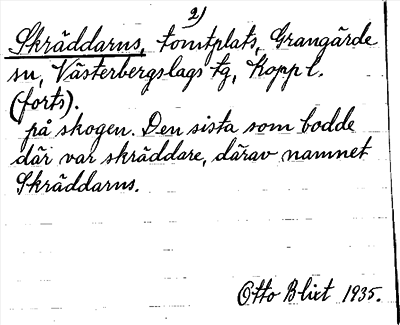 2)
Skräddarns, tomtplats, Grangärde
sn, Västerbergslags tg, Koppl.
(forts).
på skogen. Den sista som bodde
där var skräddare, därav namnet
Skräddarns.
Otto Blixt 1935.